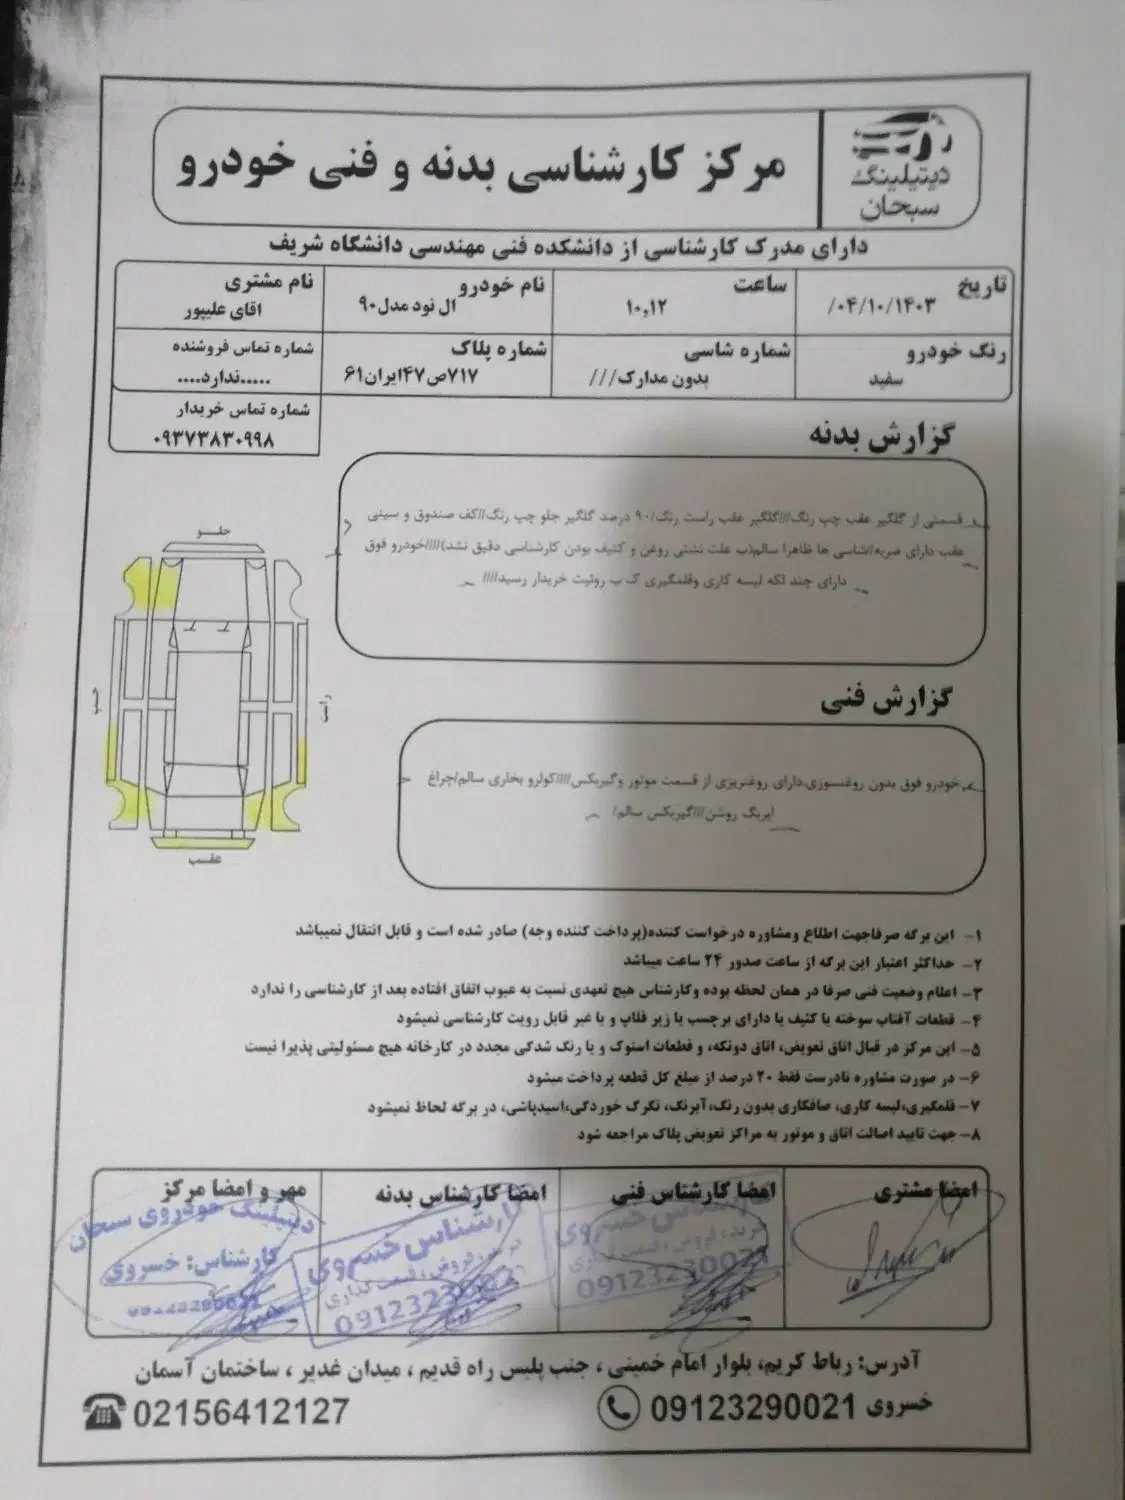 دیتیلینگ
سبحان
مرکز کارشناسی بدنه و فنی خودرو
دارای مدرک کارشناسی از دانشکده فنی مهندسی دانشگاه شریف
تاریخ
۰۴/۱۰/۱۴۰۳/
ساعت
۱۰,۱۲
نام خودرو
ال نود مدل۹۰
نام مشتری
اقای علیپور
رنگ خودرو
سفید
شماره شاسی
بدون مدارک///
شماره پلاک
۷۱۷ص۴۷ایران۶۱
شماره تماس فروشنده
.....ندارد....
شماره تماس خریدار
۰۹۳۷۳۸۳۰۹۹۸
گزارش بدنه
قسمتی از گلگیر عقب چپ رنگ///گلگیر عقب راست رنگ/۹۰ درصد گلگیر جلو چپ رنگ//کف صندوق و سینی
عقب دارای ضربه//شاسی ها ظاهرا سالم(ب علت نشتی روغن و کثیف بودن کارشناسی دقیق نشد)////خودرو فوق
دارای چند لکه لیسه کاری وقلمگیری ک ب روئیت خریدار رسید////
جلــو
چپ
راست
عقــب
گزارش فنی
خودرو فوق بدون روغنسوزی.دارای روغنریزی از قسمت موتور وگیربکس////کولرو بخاری سالم/چراغ
ایربگ روشن///گیربکس سالم/
۱- این برگه صرفاجهت اطلاع ومشاوره درخواست کننده(پرداخت کننده وجه) صادر شده است و قابل انتقال نمیباشد
۲- حداکثر اعتبار این برگه از ساعت صدور ۲۴ ساعت میباشد
۳- اعلام وضعیت فنی صرفا در همان لحظه بوده وکارشناس هیچ تعهدی نسبت به عیوب اتفاق افتاده بعد از کارشناسی را ندارد
۴- قطعات آفتاب سوخته یا کثیف یا دارای برچسب یا زیر قلاپ و یا غیر قابل رویت کارشناسی نمیشود
۵- این مرکز در قبال اتاق تعویض، اتاق دوتکه، و قطعات استوک و یا رنگ شدگی مجدد در کارخانه هیچ مسئولیتی پذیرا نیست
۶- در صورت مشاوره نادرست فقط ۲۰ درصد از مبلغ کل قطعه پرداخت میشود
۷- قلمگیری،لیسه کاری، صافکاری بدون رنگ،آبرنگ، تگرگ خوردگی،اسیدپاشی، در برگه لحاظ نمیشود
۸- جهت تایید اصالت اتاق و موتور به مراکز تعویض پلاک مراجعه شود
امضا مشتری
امضا کارشناس فنی
کارشناس خسروی
خرید، فروش، قیمت گذاری
09123230021
امضا کارشناس بدنه
کارشناس خسروی
خرید، فروش، قیمت گذاری
مهر و امضا مرکز
دیتیلینگ خودروی سبحان
کارشناس: خسروی
09123290021
آدرس: رباط کریم، بلوار امام خمینی ، جنب پلیس راه قدیم ، میدان غدیر ، ساختمان آسمان
خسروی 09123290021
02156412127